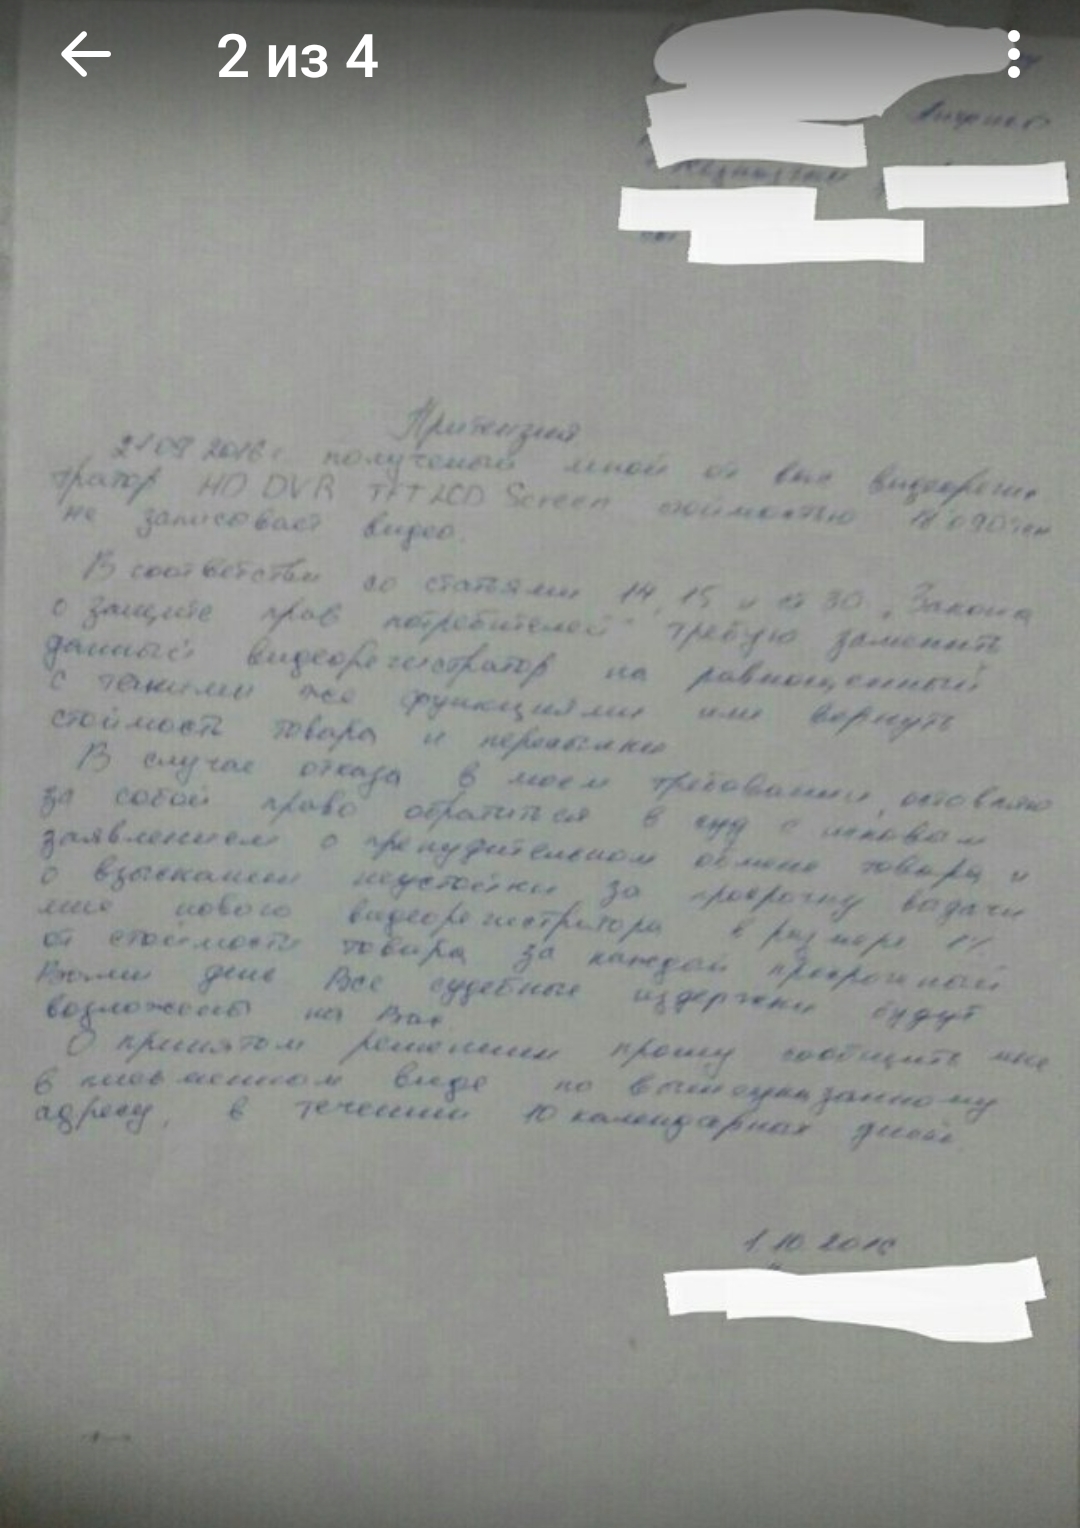 2 из 4
Притензия
21 09 2016 г. полученый мной от вас видеорегис
тратор HD DVR TFT LCD Screen стоймостью
не записовает видео.
В соответствии со статьями 14, 15 и ст 30 "Закона
о защите прав потребителей" требую заменить
данный видеорегистратор на равноценный
с такими же функциями или вернуть
стоймость товара и пересылки
В случае отказа в моем требовании, оставляю
за собой право обратиться в суд с исковым
заявлением о принудительном обмене товара и
о взыскании неустойки за просрочку выдачи
мне нового видеорегистратора в размере 1%
от стоймости товара за каждый просроченный
Вами день Все судебные издержки будут
возложены на Вас
О принятом решении прошу сообщить мне
в письменном виде по вышеуказанному
адресу, в течении 10 календарных дней.
1.10.2016